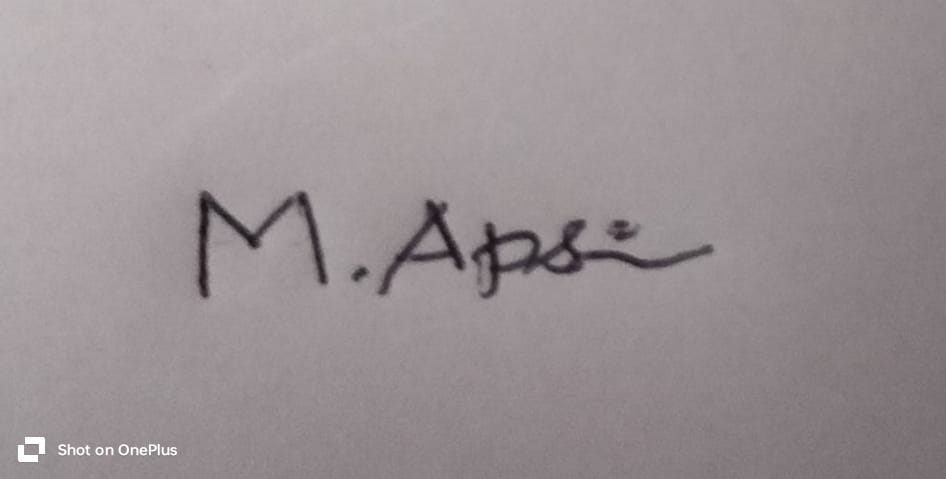 M. Apsi
Shot on OnePlus